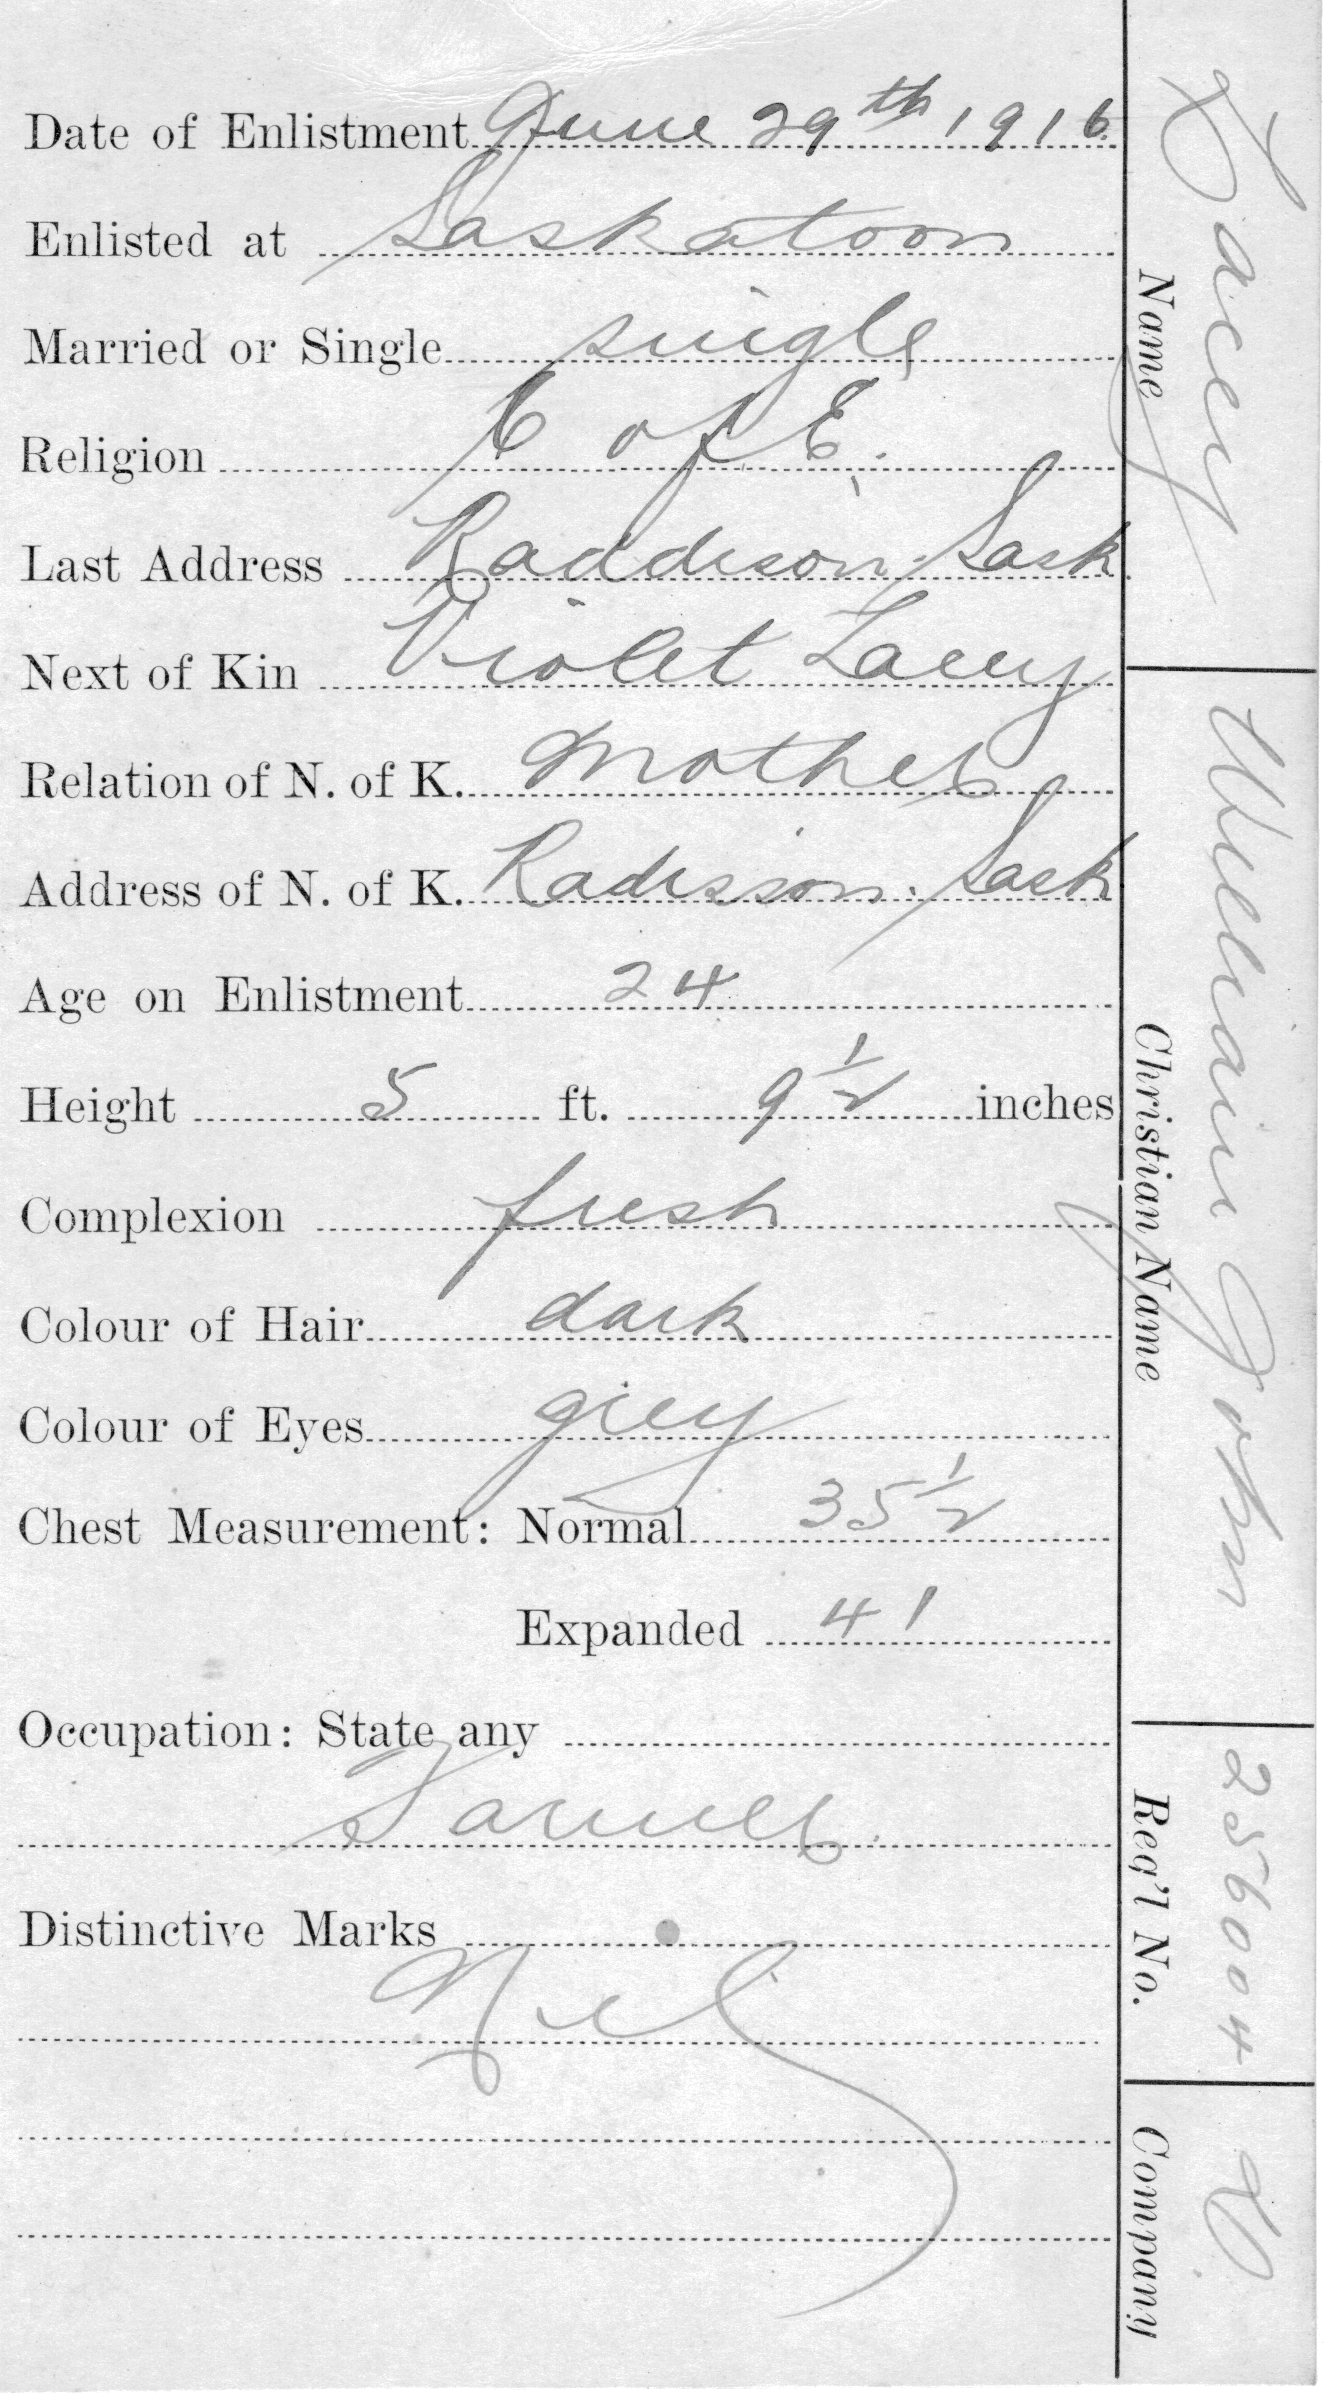 Date of Enlistment June 29th 1916
Enlisted at Saskatoon
Married or Single single
Religion C of E.
Last Address Raddison Sask
Next of Kin Violet Lacey
Relation of N. of K. mother
Address of N. of K. Radisson. Sask
Age on Enlistment 24
Height 5 ft. 9 1/2 inches
Complexion fresh
Colour of Hair dark
Colour of Eyes grey
Chest Measurement: Normal 35 1/2
Expanded 41
Occupation: State any
Farmer.
Distinctive Marks
Nil
Lacey William John 256004
Name Christian Name Reg'l No. Company